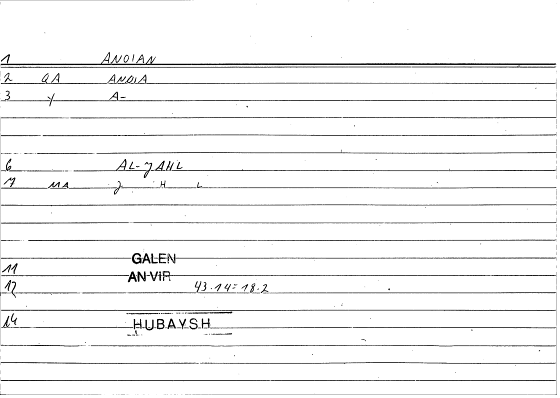 1 ANDIAN
2 QA ANDIA
3 Y A-
6 AL-JAHL
7 MA J H L
GALEN
11
AN-VIR
12 43.14=18.2
14 HUBAYSH